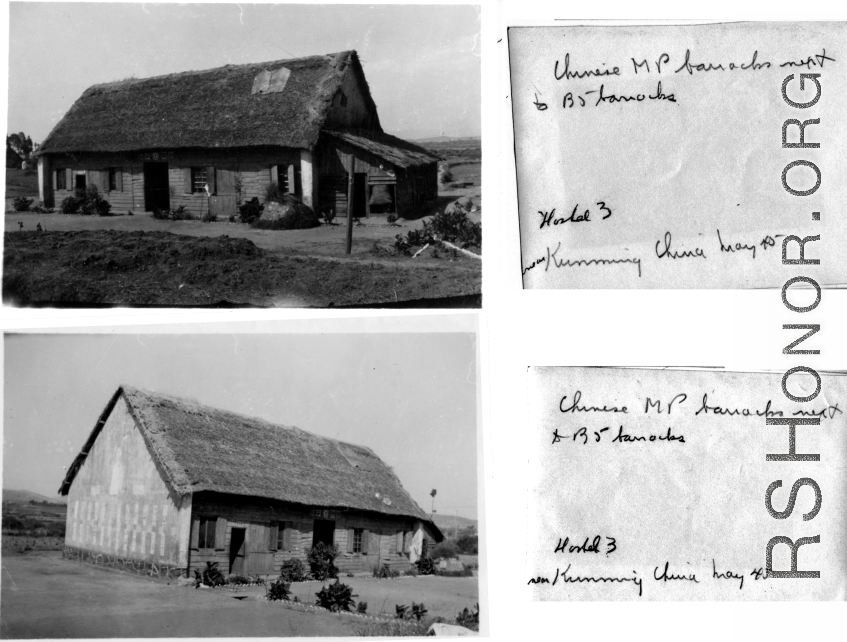 Chinese MP barracks next
to B5 barracks
Hostel 3
near Kunming China May 45
Chinese MP barracks next
to B5 barracks
Hostel 3
near Kunming China May 45
RSHONOR.ORG